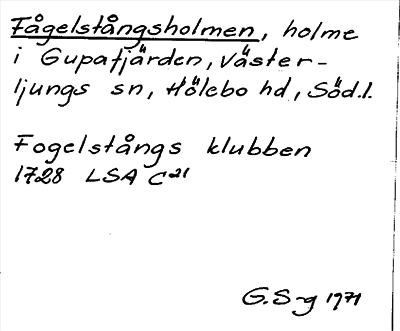 Fågelstångsholmen, holme
i Gupafjärden, Väster-
ljungs sn, Hölebo hd, Söd.l.
Fogelstångs klubben
1728 LSA C²¹
G.S-g 1971